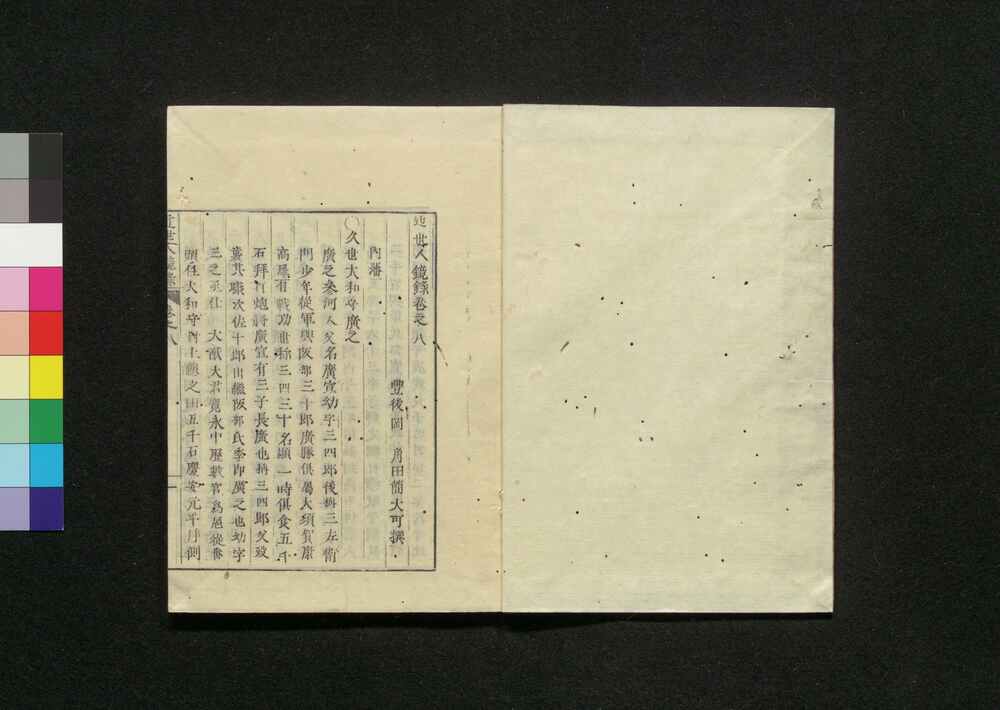 近世人鏡録巻之八
豐後岡 角田簡大可撰
内藩
〇久世大和守廣之
廣之參河人父名廣宣幼字三四郎後稱三左衛
門少年從軍與阪部三十郎廣勝俱屬大須賀康
高屢有戰功世稱三四三十名顯一時俱食五千
石拜 炮將廣宣有三子長廣也稱三四郎父致
其職次佐十郎出繼阪部氏季即廣之也幼字
三之丞仕 大猷大君寛永中歷數官爲扈從番
頭任大和守 上總之田五千石慶安元年 側
近世人鏡録 巻之八